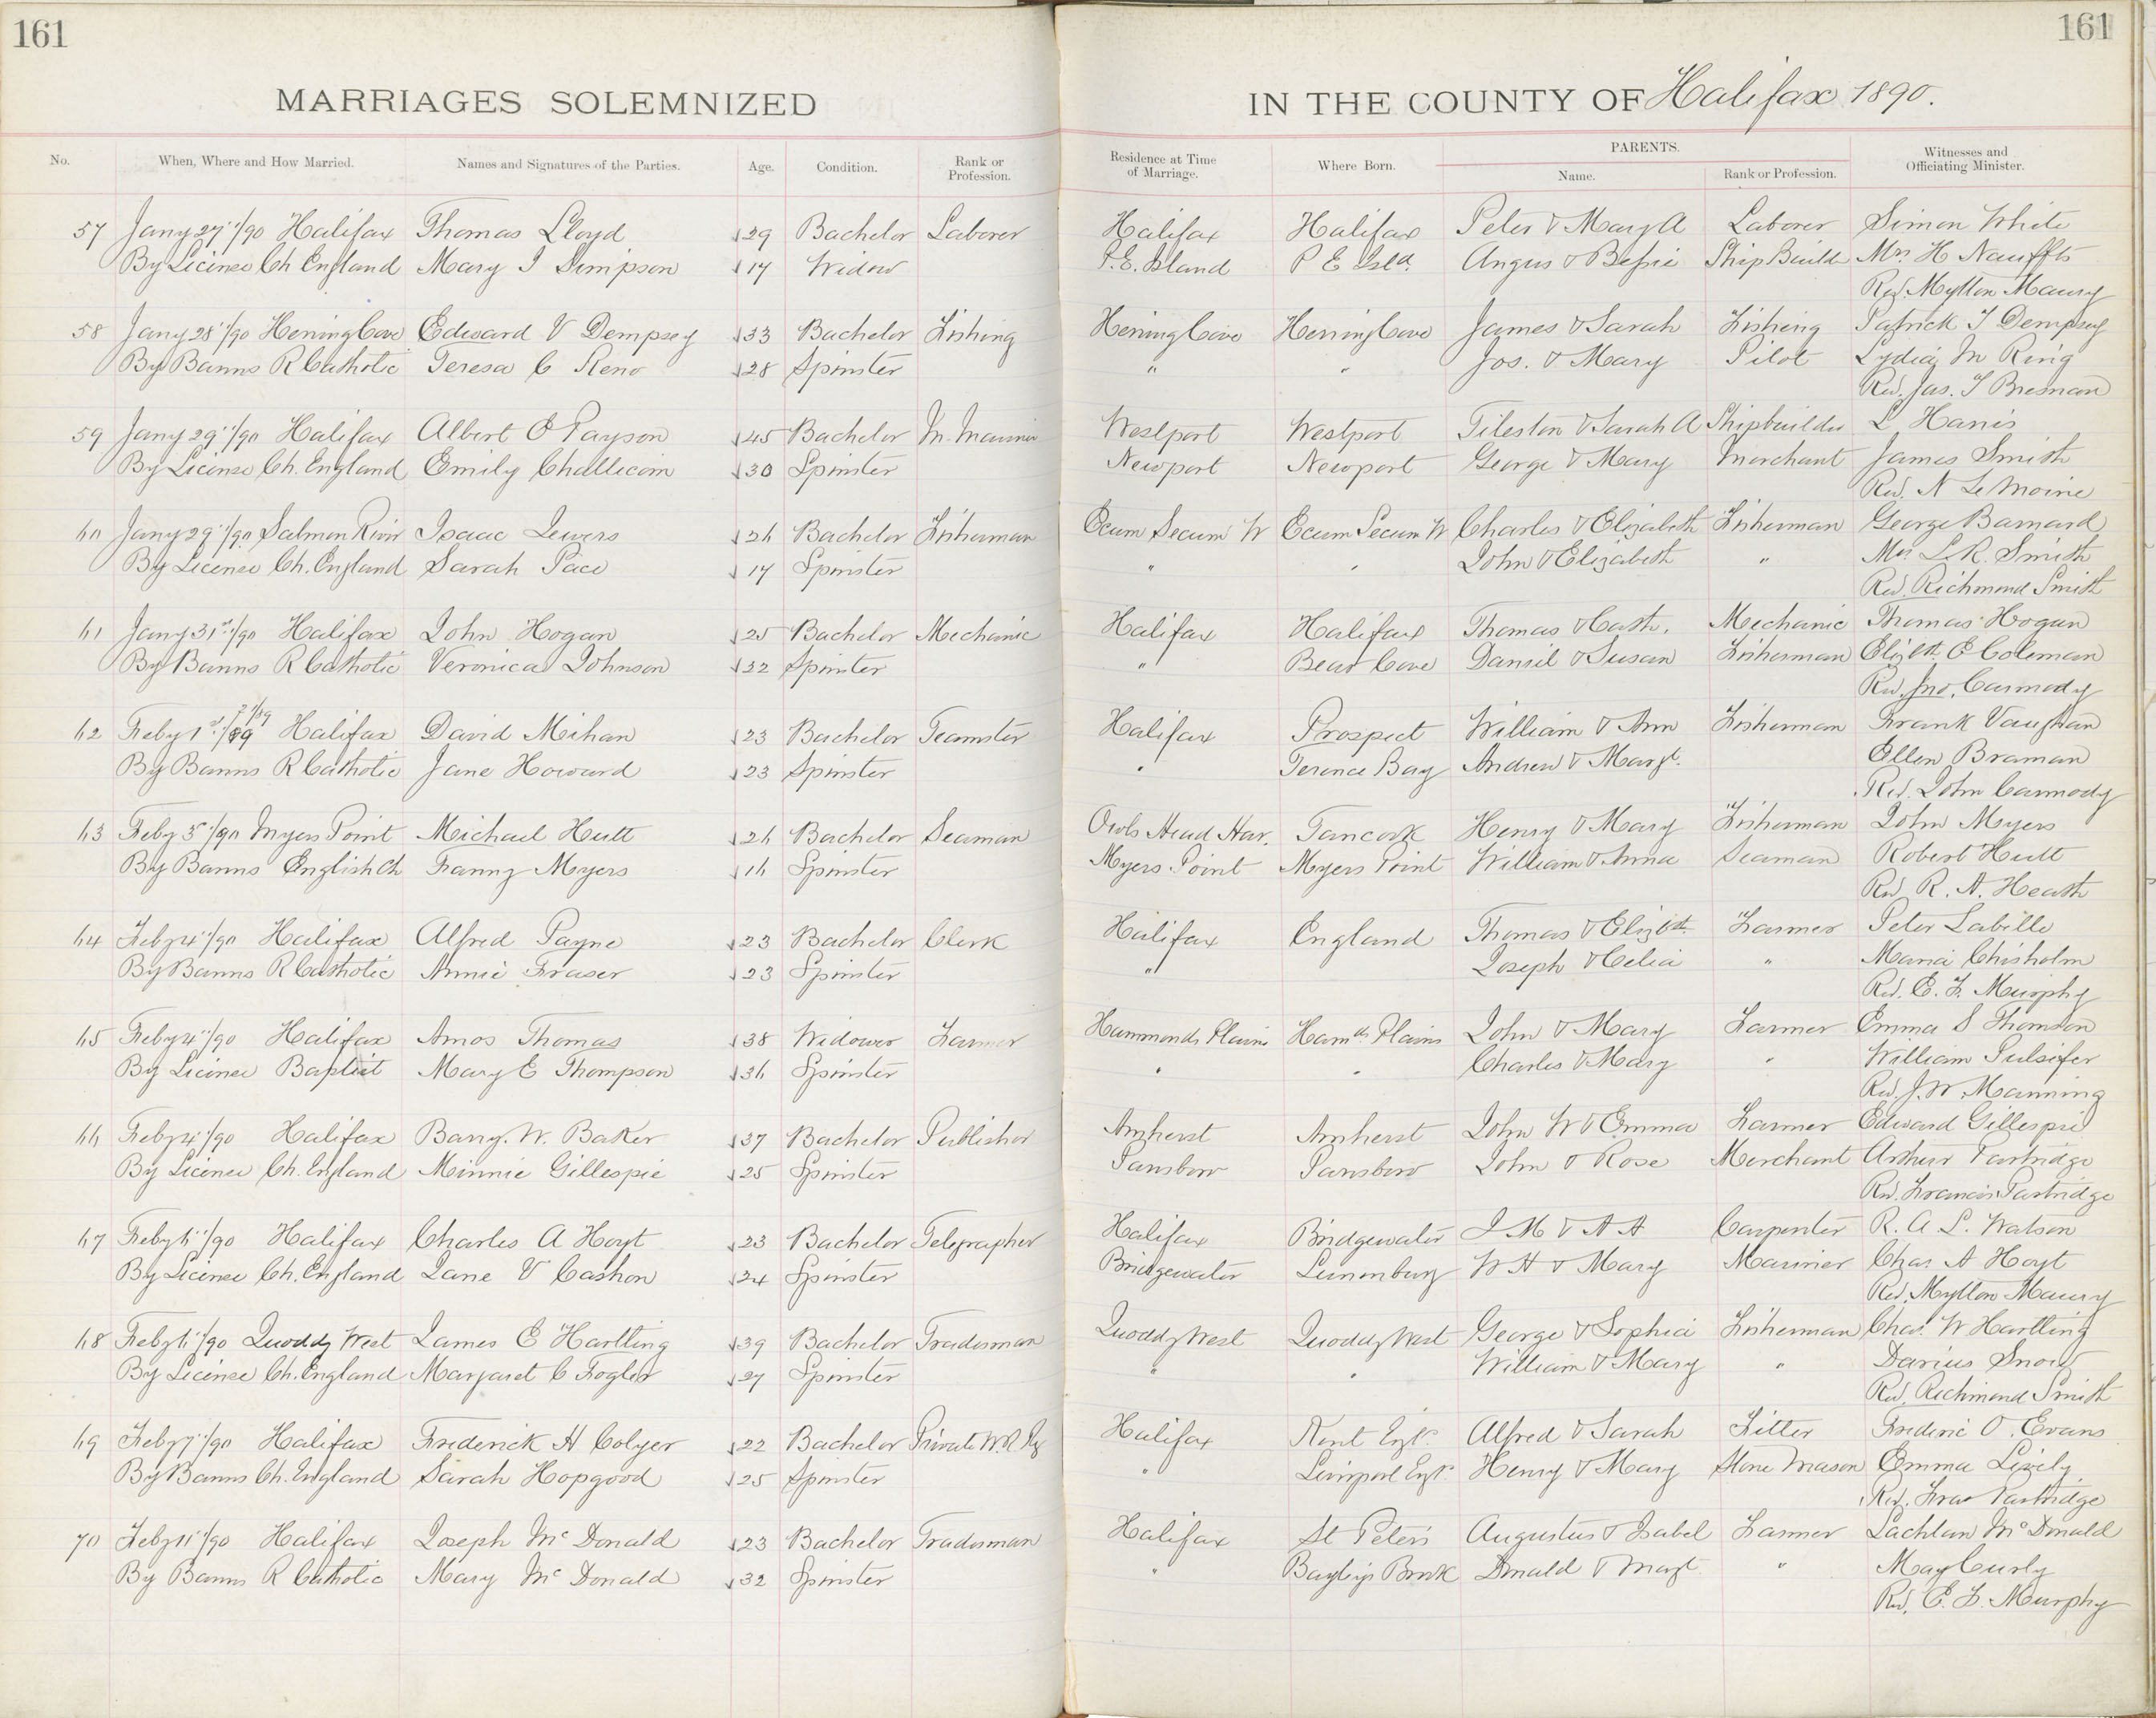 161
161
MARRIAGES SOLEMNIZED
IN THE COUNTY OF Halifax 1890.
No. When, Where and How Married. Names and Signatures of the Parties. Age. Condition. Rank or Profession. Residence at Time of Marriage. Where Born. PARENTS. Name. Rank or Profession. Witnesses and Officiating Minister.
57 Jany 27"/90 Halifax Thomas Lloyd 29 Bachelor Laborer Halifax Halifax Peter & Mary A Laborer Simon White
By License Ch England Mary I Simpson 17 Widow P.E. Island P E Isld. Angus & Bessie Ship Build Mrs. H Nauffts
Rev. Mytton Maury
58 Jany 28"/90 Herring Cove Edward V Dempsey 33 Bachelor Fishing Herring Cove Herring Cove James & Sarah Fishing Patrick J Dempsey
By Banns R Catholic Teresa C Reno 28 Spinster " " Jos. & Mary Pilot Lydia M Ring
Rev. Jas. T Bresnan
59 Jany 29"/90 Halifax Albert E Payson 45 Bachelor M. Westport Westport Tileston & Sarah A Shipbuilder L Harris
By License Ch. England Emily 30 Spinster Newport Newport George & Mary Merchant James Smith
Rev. N Le Moine
60 Jany 29"/90 Salmon River Isaac Jewers 26 Bachelor Fisherman Ecum Secum W Ecum Secum W Charles & Elizabeth Fisherman George Barnard
By License Ch. England Sarah Pace 17 Spinster " " John & Elizabeth " Mrs L.R. Smith
Rev. Richmond Smith
61 Jany 31st/90 Halifax John Hogan 25 Bachelor Mechanic Halifax Halifax Thomas & Cath. Mechanic Thomas Hogan
By Banns R Catholic Veronica Johnson 32 Spinster " Bear Cove Daniel & Susan Fisherman Elizth. E Coleman
Rev. Jno. Carmody
62 Feby 1st/89 Halifax David Mihan 23 Bachelor Teamster Halifax Prospect William & Ann Fisherman Frank Vaughan
By Banns R Catholic Jane Howard 23 Spinster " Terence Bay Andrew & Margt. Ellen Braman
Rev. John Carmody
63 Feby 3"/90 Myers Point Michael Hutt 26 Bachelor Seaman Owls Head Har. Tancook Henry & Mary Fisherman John Myers
By Banns English Ch Fanny Myers 16 Spinster Myers Point Myers Point William & Anna Seaman Robert Hutt
Rev R. A. Heath
64 Feby 4"/90 Halifax Alfred Payne 23 Bachelor Clerk Halifax England Thomas & Elizth. Farmer Peter Labille
By Banns R Catholic Annie Fraser 23 Spinster " Joseph & Celia " Maria Chisholm
Rev. E. F. Murphy
65 Feby 4"/90 Halifax Amos Thomas 38 Widower Farmer Hammonds Plains Hamds. Plains John & Mary Farmer Emma S Thomson
By License Baptist Mary E Thompson 36 Spinster " " Charles & Mary " William Pulsifer
Rev. J. W. Manning
66 Feby 4"/90 Halifax Barry. W. Baker 37 Bachelor Publisher Amherst Amherst John W & Emma Farmer Edward Gillespie
By License Ch. England Minnie Gillespie 25 Spinster Parrsboro Parrsboro John & Rose Merchant Arthur Partridge
Rev. Francis Partridge
67 Feby 6"/90 Halifax Charles A Hoyt 23 Bachelor Telegrapher Halifax Bridgewater J M & A A Carpenter R. A. L. Watson
By License Ch. England Jane V Cashon 24 Spinster Bridgewater Lunenburg W H & Mary Mariner Chas. A Hoyt
Rev. Mytton Maury
68 Feby 6"/90 Quoddy West James E Hartling 39 Bachelor Tradesman Quoddy West Quoddy West George & Sophia Fisherman Chas. W Hartling
By License Ch. England Margaret C Fogler 27 Spinster " " William & Mary " Darius Snow
Rev. Richmond Smith
69 Feby 7"/90 Halifax Frederick H Colyer 22 Bachelor Private W.R. Rg Halifax Kent Engd. Alfred & Sarah Fitter Frederic O. Evans
By Banns Ch. England Sarah Hopgood 25 Spinster " Liverpool Engd. Henry & Mary Stone Mason Emma Lively
Rev. Fras Partridge
70 Feby 11"/90 Halifax Joseph McDonald 23 Bachelor Tradesman Halifax St Peters Augustus & Isabel Farmer Lachlan McDonald
By Banns R Catholic Mary McDonald 32 Spinster " Donald & Margt " May Curly
Rev. E. F. Murphy